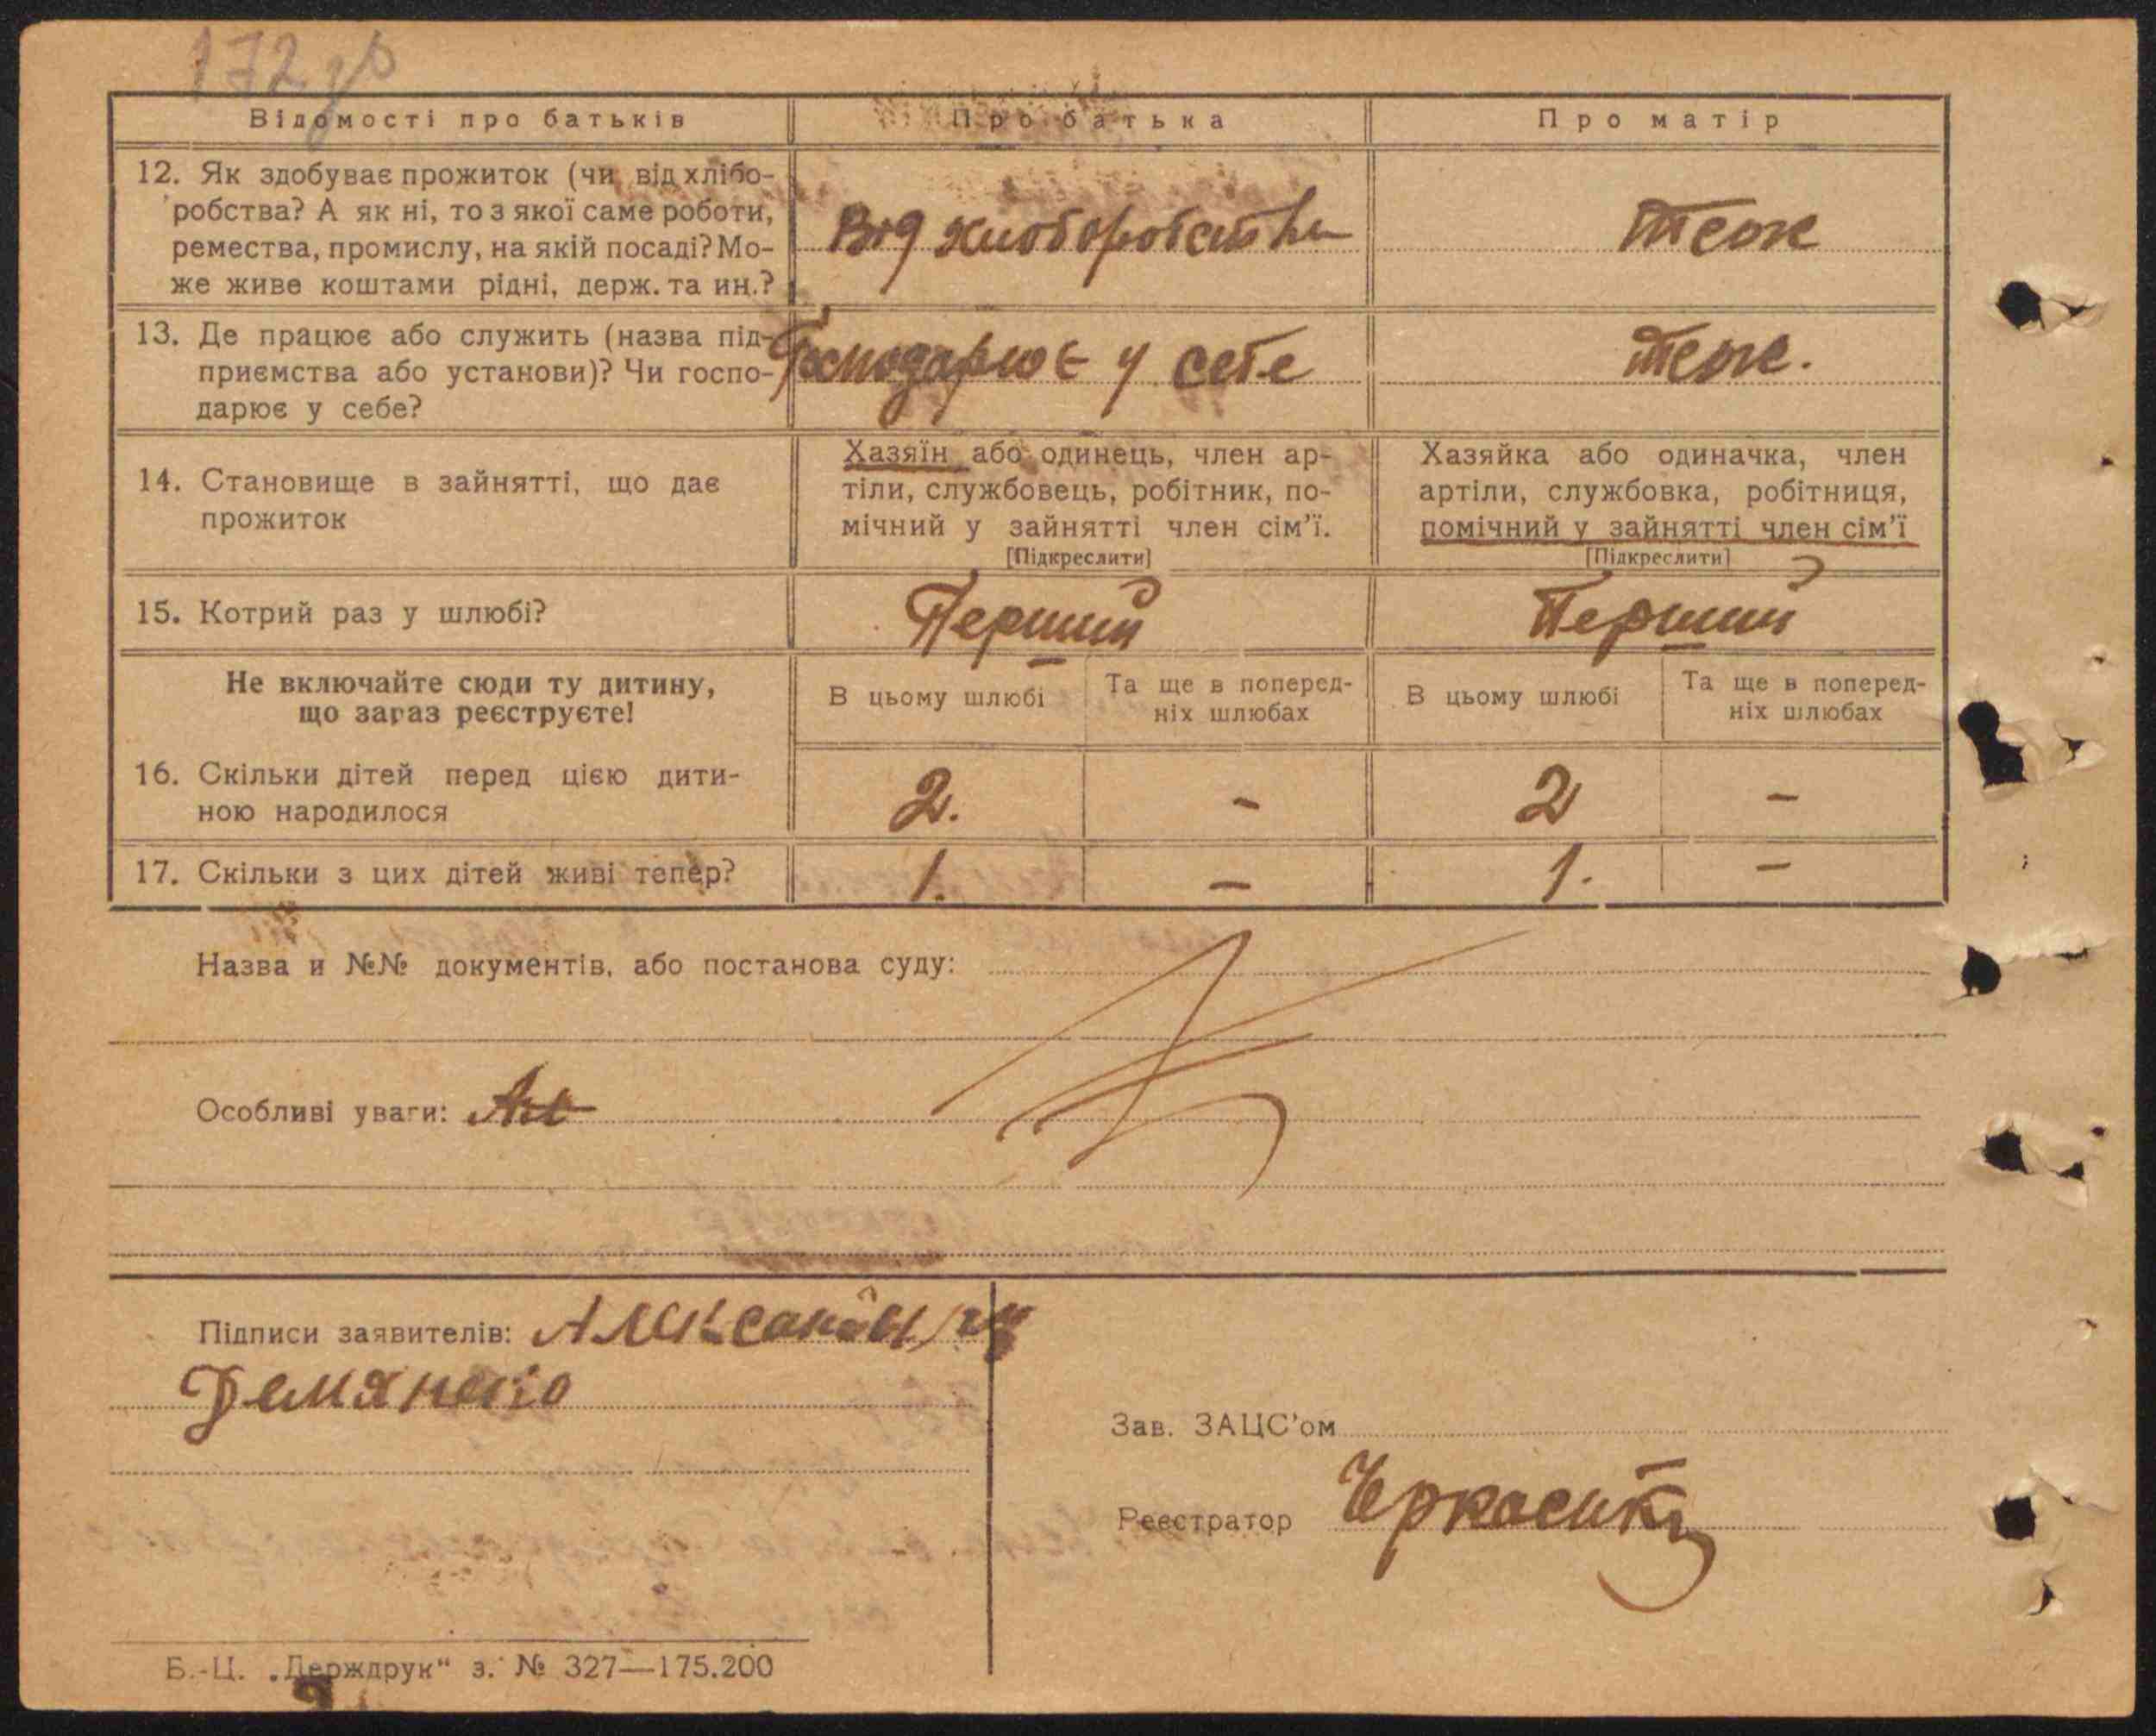 172
Відомості про батьків
Про батька
Про матір
12. Як здобуває прожиток (чи від хлібо-
робства? А як ні, то з якої саме роботи,
ремества, промислу, на якій посаді? Мо-
же живе коштами рідні, держ. та ин.?
Від хліборобства
Теж
13. Де працює або служить (назва під-
приємства або установи)? Чи госпо-
дарює у себе?
Господарює у себе
Теж.
14. Становище в зайнятті, що дає
прожиток
Хазяїн або одинець, член ар-
тіли, службовець, робітник, по-
мічний у зайнятті член сім'ї.
[Підкреслити]
Хазяйка або одиначка, член
артіли, службовка, робітниця,
помічний у зайнятті член сім'ї
[Підкреслити]
15. Котрий раз у шлюбі?
Перший
Перший
Не включайте сюди ту дитину,
що зараз реєструєте!
В цьому шлюбі
Та ще в поперед-
ніх шлюбах
В цьому шлюбі
Та ще в поперед-
ніх шлюбах
16. Скільки дітей перед цією дити-
ною народилося
2.
-
2
-
17. Скільки з цих дітей живі тепер?
1.
-
1.
-
Назва и №№ документів, або постанова суду:
Особливі уваги:
Підписи заявителів:
Демяненко
Зав. ЗАЦС'ом
Реєстратор
Б.-Ц. „Держдрук" з. № 327—175.200